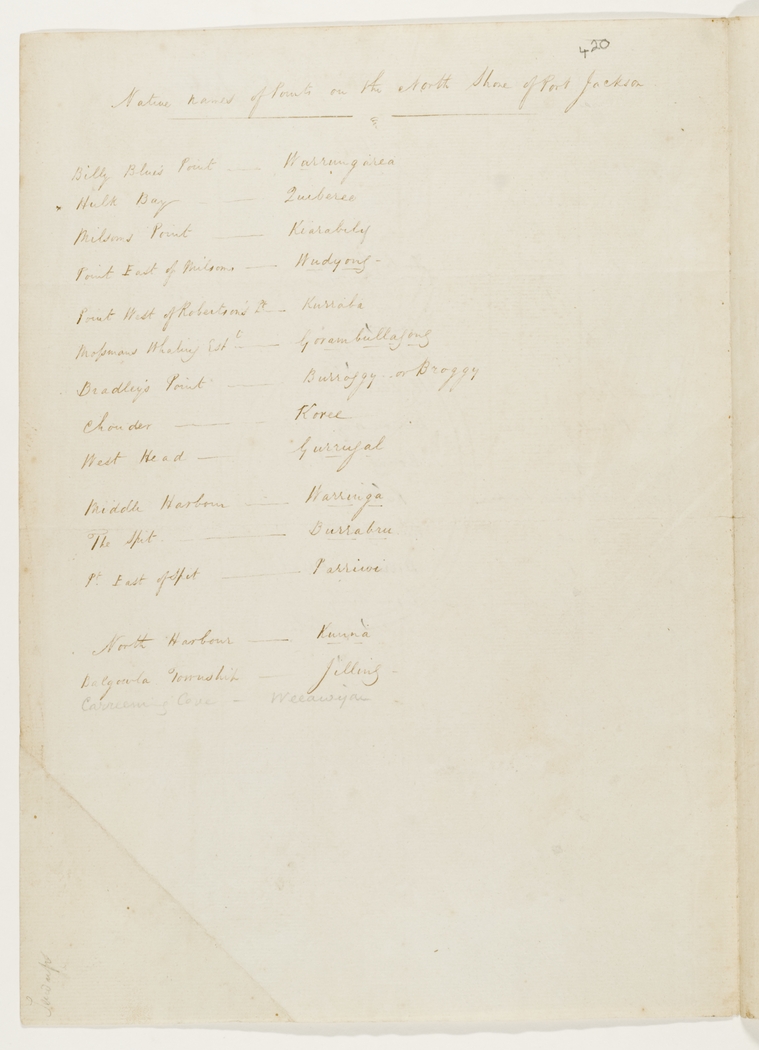 420
Native names of Points on the North Shore of Port Jackson
Billy Blues Point — Warrungarea
Hulk Bay — Quiberee
Milsons Point — Kiarabily
Point East of Milsons — Wudyong -
Point West of Robertson's Pt — Kurraba
Mossmans Whaling Estt — Gorambùllagong
Bradley's Point — Burròggy or Broggy
Chouder — Koree
West Head — Gurrugal
Middle Harbour — Warringà
The Spit — Burrabru
Pt. East of Spit — Parriwi
North Harbour — Kunnà
Balgowla Township — Jilling -
Carreening Cove — Weeawiyan -